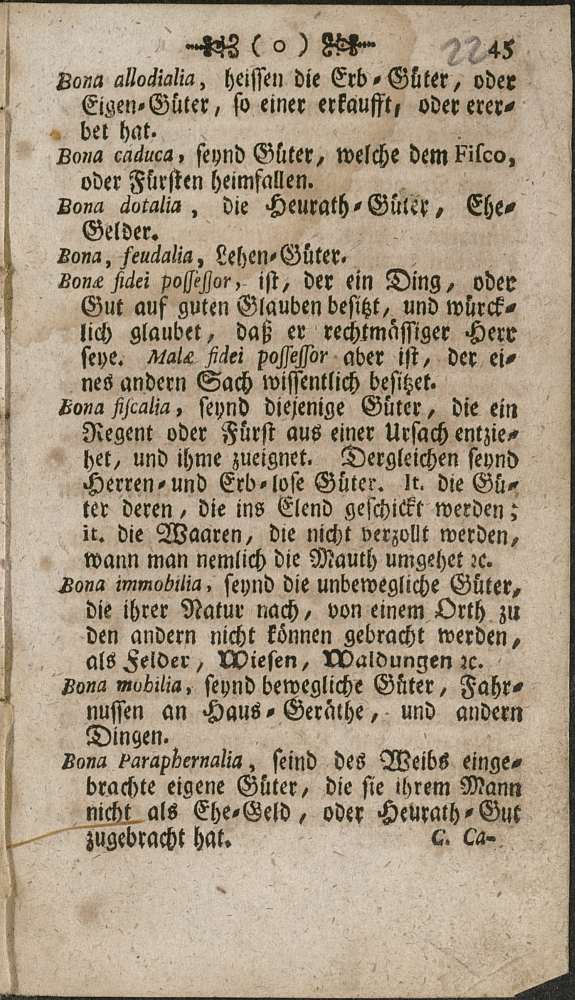 ( o ) 22 45
Bona allodialia, heissen die Erb-Güter, oder
Eigen-Güter, so einer erkaufft, oder erer-
bet hat.
Bona caduca, seynd Güter, welche dem Fisco,
oder Fürsten heimfallen.
Bona dotalia, die Heurath-Güter, Ehe-
Gelder.
Bona, feudalia, Lehen-Güter.
Bonæ fidei possessor, ist, der ein Ding, oder
Gut auf guten Glauben besitzt, und würck-
lich glaubet, daß er rechtmässiger Herr
seye. Malæ fidei possessor aber ist, der ei-
nes andern Sach wissentlich besitzet.
Bona fiscalia, seynd diejenige Güter, die ein
Regent oder Fürst aus einer Ursach entzie-
het, und ihme zueignet. Dergleichen seynd
Herren- und Erb-lose Güter. It. die Gü-
ter deren, die ins Elend geschickt werden;
it. die Waaren, die nicht verzollt werden,
wann man nemlich die Mauth umgehet ꝛc.
Bona immobilia, seynd die unbewegliche Güter,
die ihrer Natur nach, von einem Orth zu
den andern nicht können gebracht werden,
als Felder, Wiesen, Waldungen ꝛc.
Bona mobilia, seynd bewegliche Güter, Fahr-
nussen an Haus-Geräthe, und andern
Dingen.
Bona Paraphernalia, seind des Weibs einge-
brachte eigene Güter, die sie ihrem Mann
nicht als Ehe-Geld, oder Heurath-Gut
zugebracht hat. C. Ca-